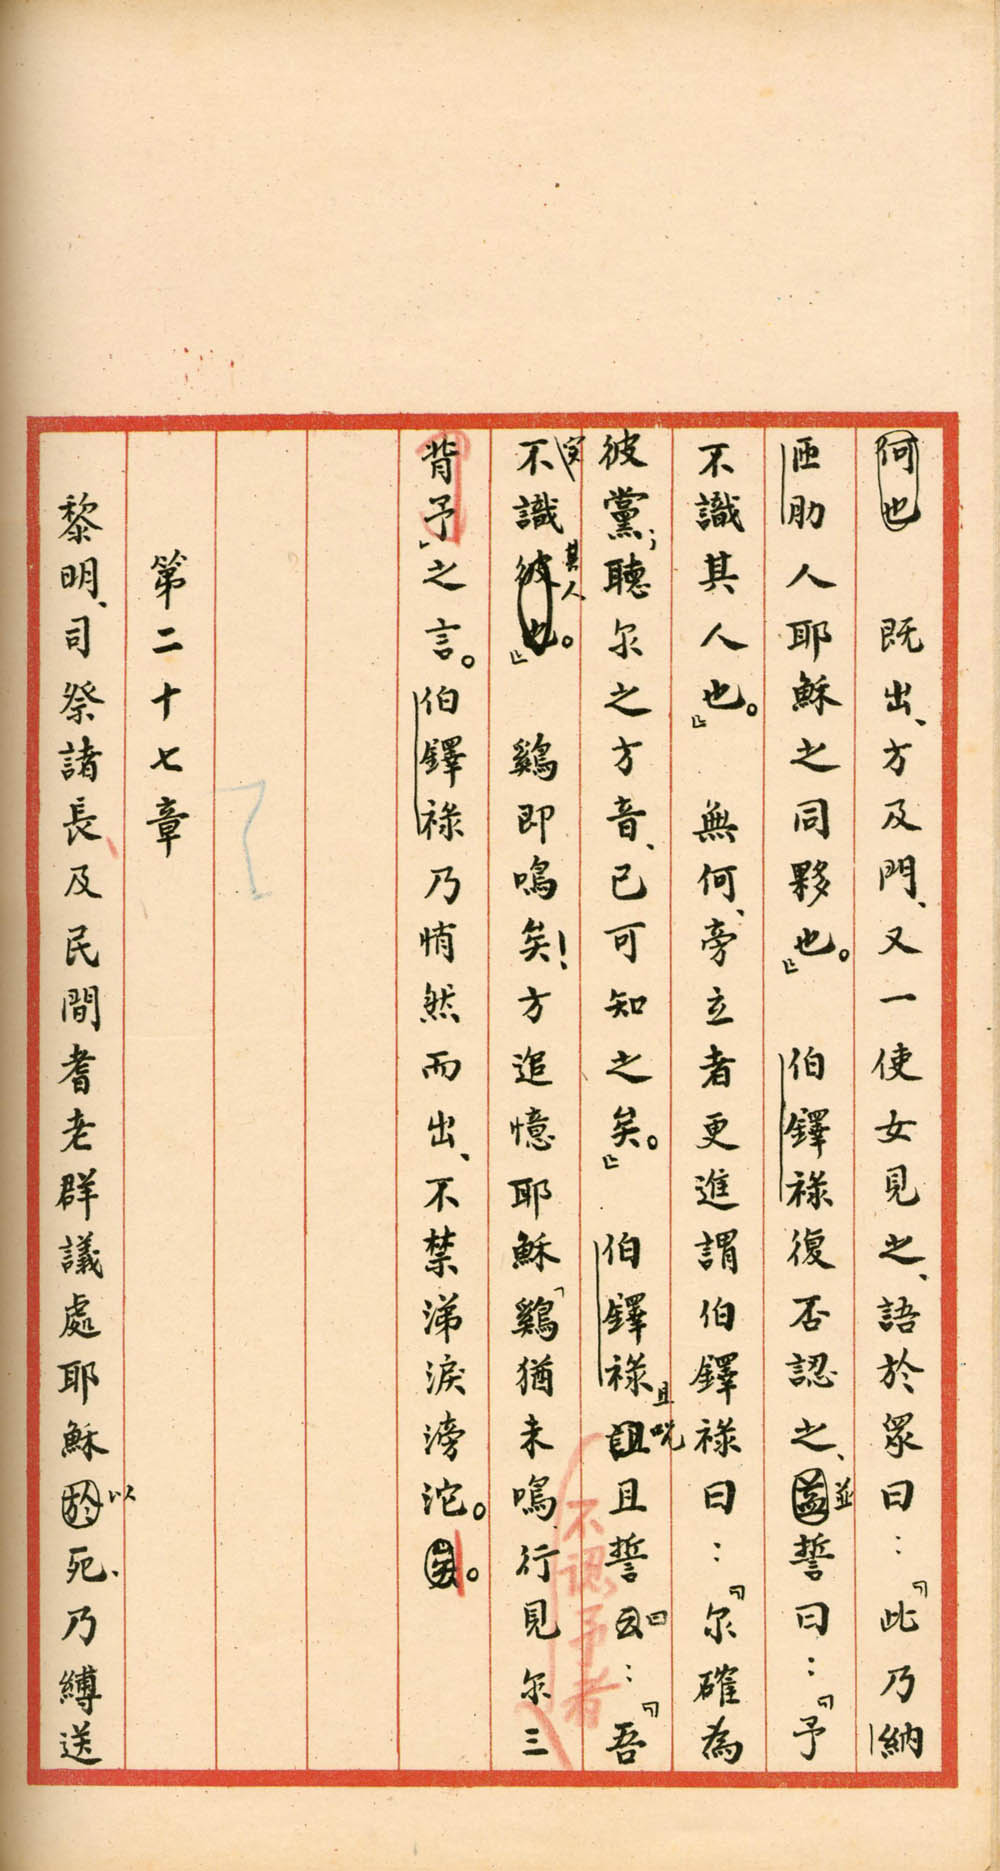 何也　既出、方及門、又一使女見之、語於眾曰：『此乃納
匝肋人耶穌之同夥也。』　伯鐸祿復否認之、並誓曰：『予
不識其人也。』　無何、旁立者更進謂伯鐸祿曰：『尔確為
彼黨；聽尔之方音、已可知之矣。』　伯鐸祿詛且咒且誓云曰：『吾
實不識彼也其人。』　鷄即鳴矣！方追憶耶穌「鷄猶未鳴行見尔三
不認予者
背予」之言。伯鐸祿乃悄然而出、不禁涕淚滂沱。矣。
第二十七章
黎明、司祭諸長及民間耆老群議處耶穌於以死、乃縛送